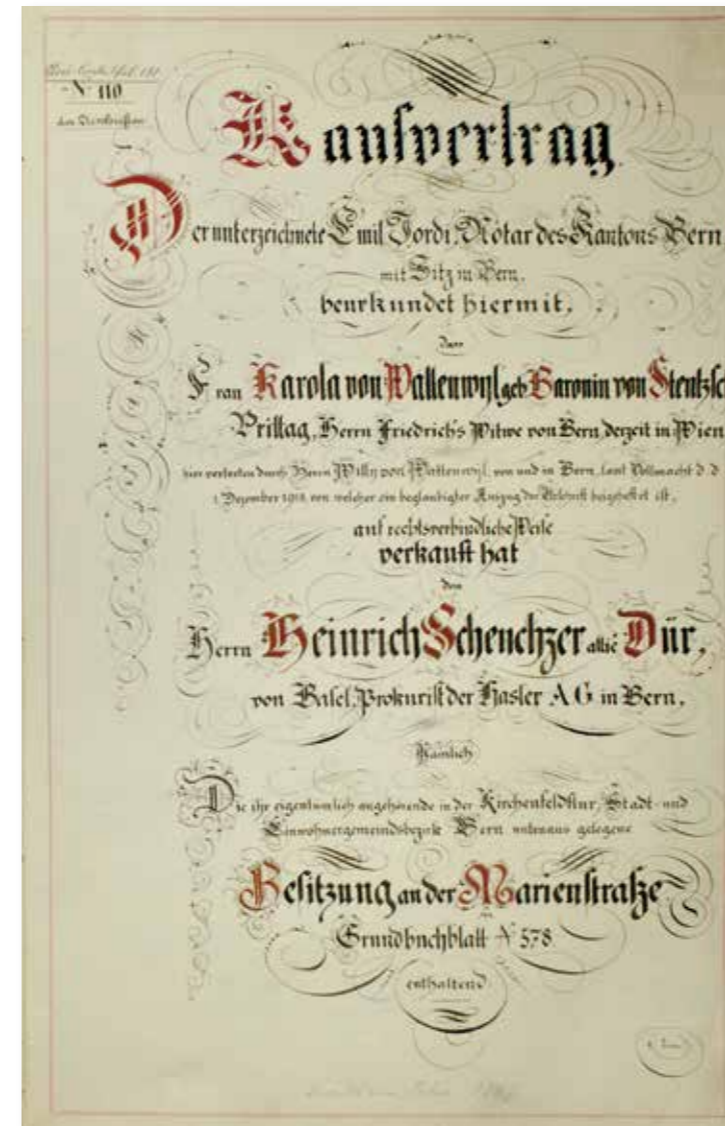 N° 110
Kaufvertrag.
Der unterzeichnete Emil Jordi, Notar des Kantons Bern
mit Sitz in Bern,
beurkundet hiermit,
dass
Frau Karola von Wattenwyl geb Baronin von Stentzsch
Prittag, Herrn Friedrich's Witwe von Bern, derzeit in Wien
hier vertreten durch Herrn Willy von Wattenwyl, von und in Bern, laut Vollmacht d. d.
Dezember 1918, von welcher ein beglaubigter Auszug der Urschrift beigeheftet ist,
auf rechtsverbindliche Weise
verkauft hat
dem
Herrn Heinrich Scheuchzer allié Dür,
von Basel, Prokurist der Hasler A.G. in Bern,
Nämlich
Die ihr eigentümlich angehörende in der Kirchenfeldflur, Stadt- und
Einwohnergemeindsbezirke Bern untenaus gelegene
Besitzung an der Marienstraße
Grundbuchblatt N° 578
enthaltend: